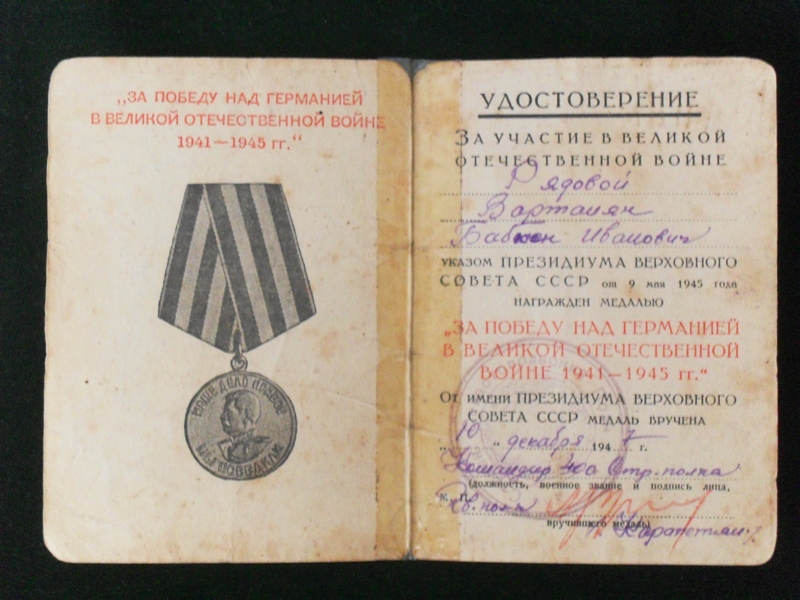 „ЗА ПОБЕДУ НАД ГЕРМАНИЕЙ
В ВЕЛИКОЙ ОТЕЧЕСТВЕННОЙ ВОЙНЕ
1941—1945 гг.“
НАШЕ ДЕЛО ПРАВОЕ
МЫ ПОБЕДИЛИ
УДОСТОВЕРЕНИЕ
ЗА УЧАСТИЕ В ВЕЛИКОЙ
ОТЕЧЕСТВЕННОЙ ВОЙНЕ
Рядовой
Вартанян
Бабкен Иванович
УКАЗОМ ПРЕЗИДИУМА ВЕРХОВНОГО
СОВЕТА СССР от 9 мая 1945 года
НАГРАЖДЕН МЕДАЛЬЮ
„ЗА ПОБЕДУ НАД ГЕРМАНИЕЙ
В ВЕЛИКОЙ ОТЕЧЕСТВЕННОЙ
ВОЙНЕ 1941—1945 гг.“
От имени ПРЕЗИДИУМА ВЕРХОВНОГО
СОВЕТА СССР МЕДАЛЬ ВРУЧЕНА
„10 „ декабря 1947 г.
Командир 400 Стр. полка
(должность, военное звание и подпись лица,
М. П.
вручившего медаль)
Карапетян